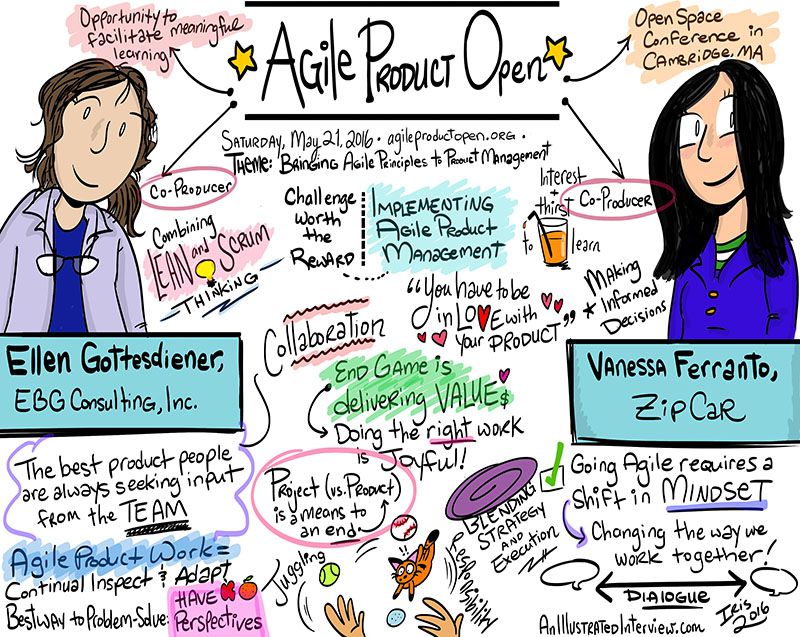 Opportunity to
facilitate meaningful
learning
AGILE PRODUCT OPEN
Open Space
Conference in
CAMBRIDGE, MA
SATURDAY, MAY 21, 2016 · agileproductopen.org ·
THEME: BRINGING AGILE PRINCIPLES TO PRODUCT MANAGEMENT
CO-PRODUCER
CO-PRODUCER
Combining
LEAN and SCRUM
THINKING
Challenge
worth
the
REWARD
IMPLEMENTING
Agile Product
MANAGEMENT
Interest
+
thirst
to learn
MAKING
Informed
Decisions
"You have to be
in LOVE with
your PRODUCT"
Collaboration
Ellen Gottesdiener,
EBG Consulting, Inc.
END GAME is
delivering VALUE$
Doing the right work
is Joyful!
Vanessa Ferranto,
ZipCar
The best product people
are always seeking input
from the TEAM
Project (vs. Product)
is a means to
an end.
BLENDING
STRATEGY
AND
EXECUTION
Going Agile requires a
Shift in MINDSET
Changing the way we
work together!
DIALOGUE
Agile Product Work =
Continual Inspect & Adapt
Best way to Problem-Solve:
HAVE
Perspectives
Juggling
Responsibility
AnIllustratedInterview.com
IRIS
2016